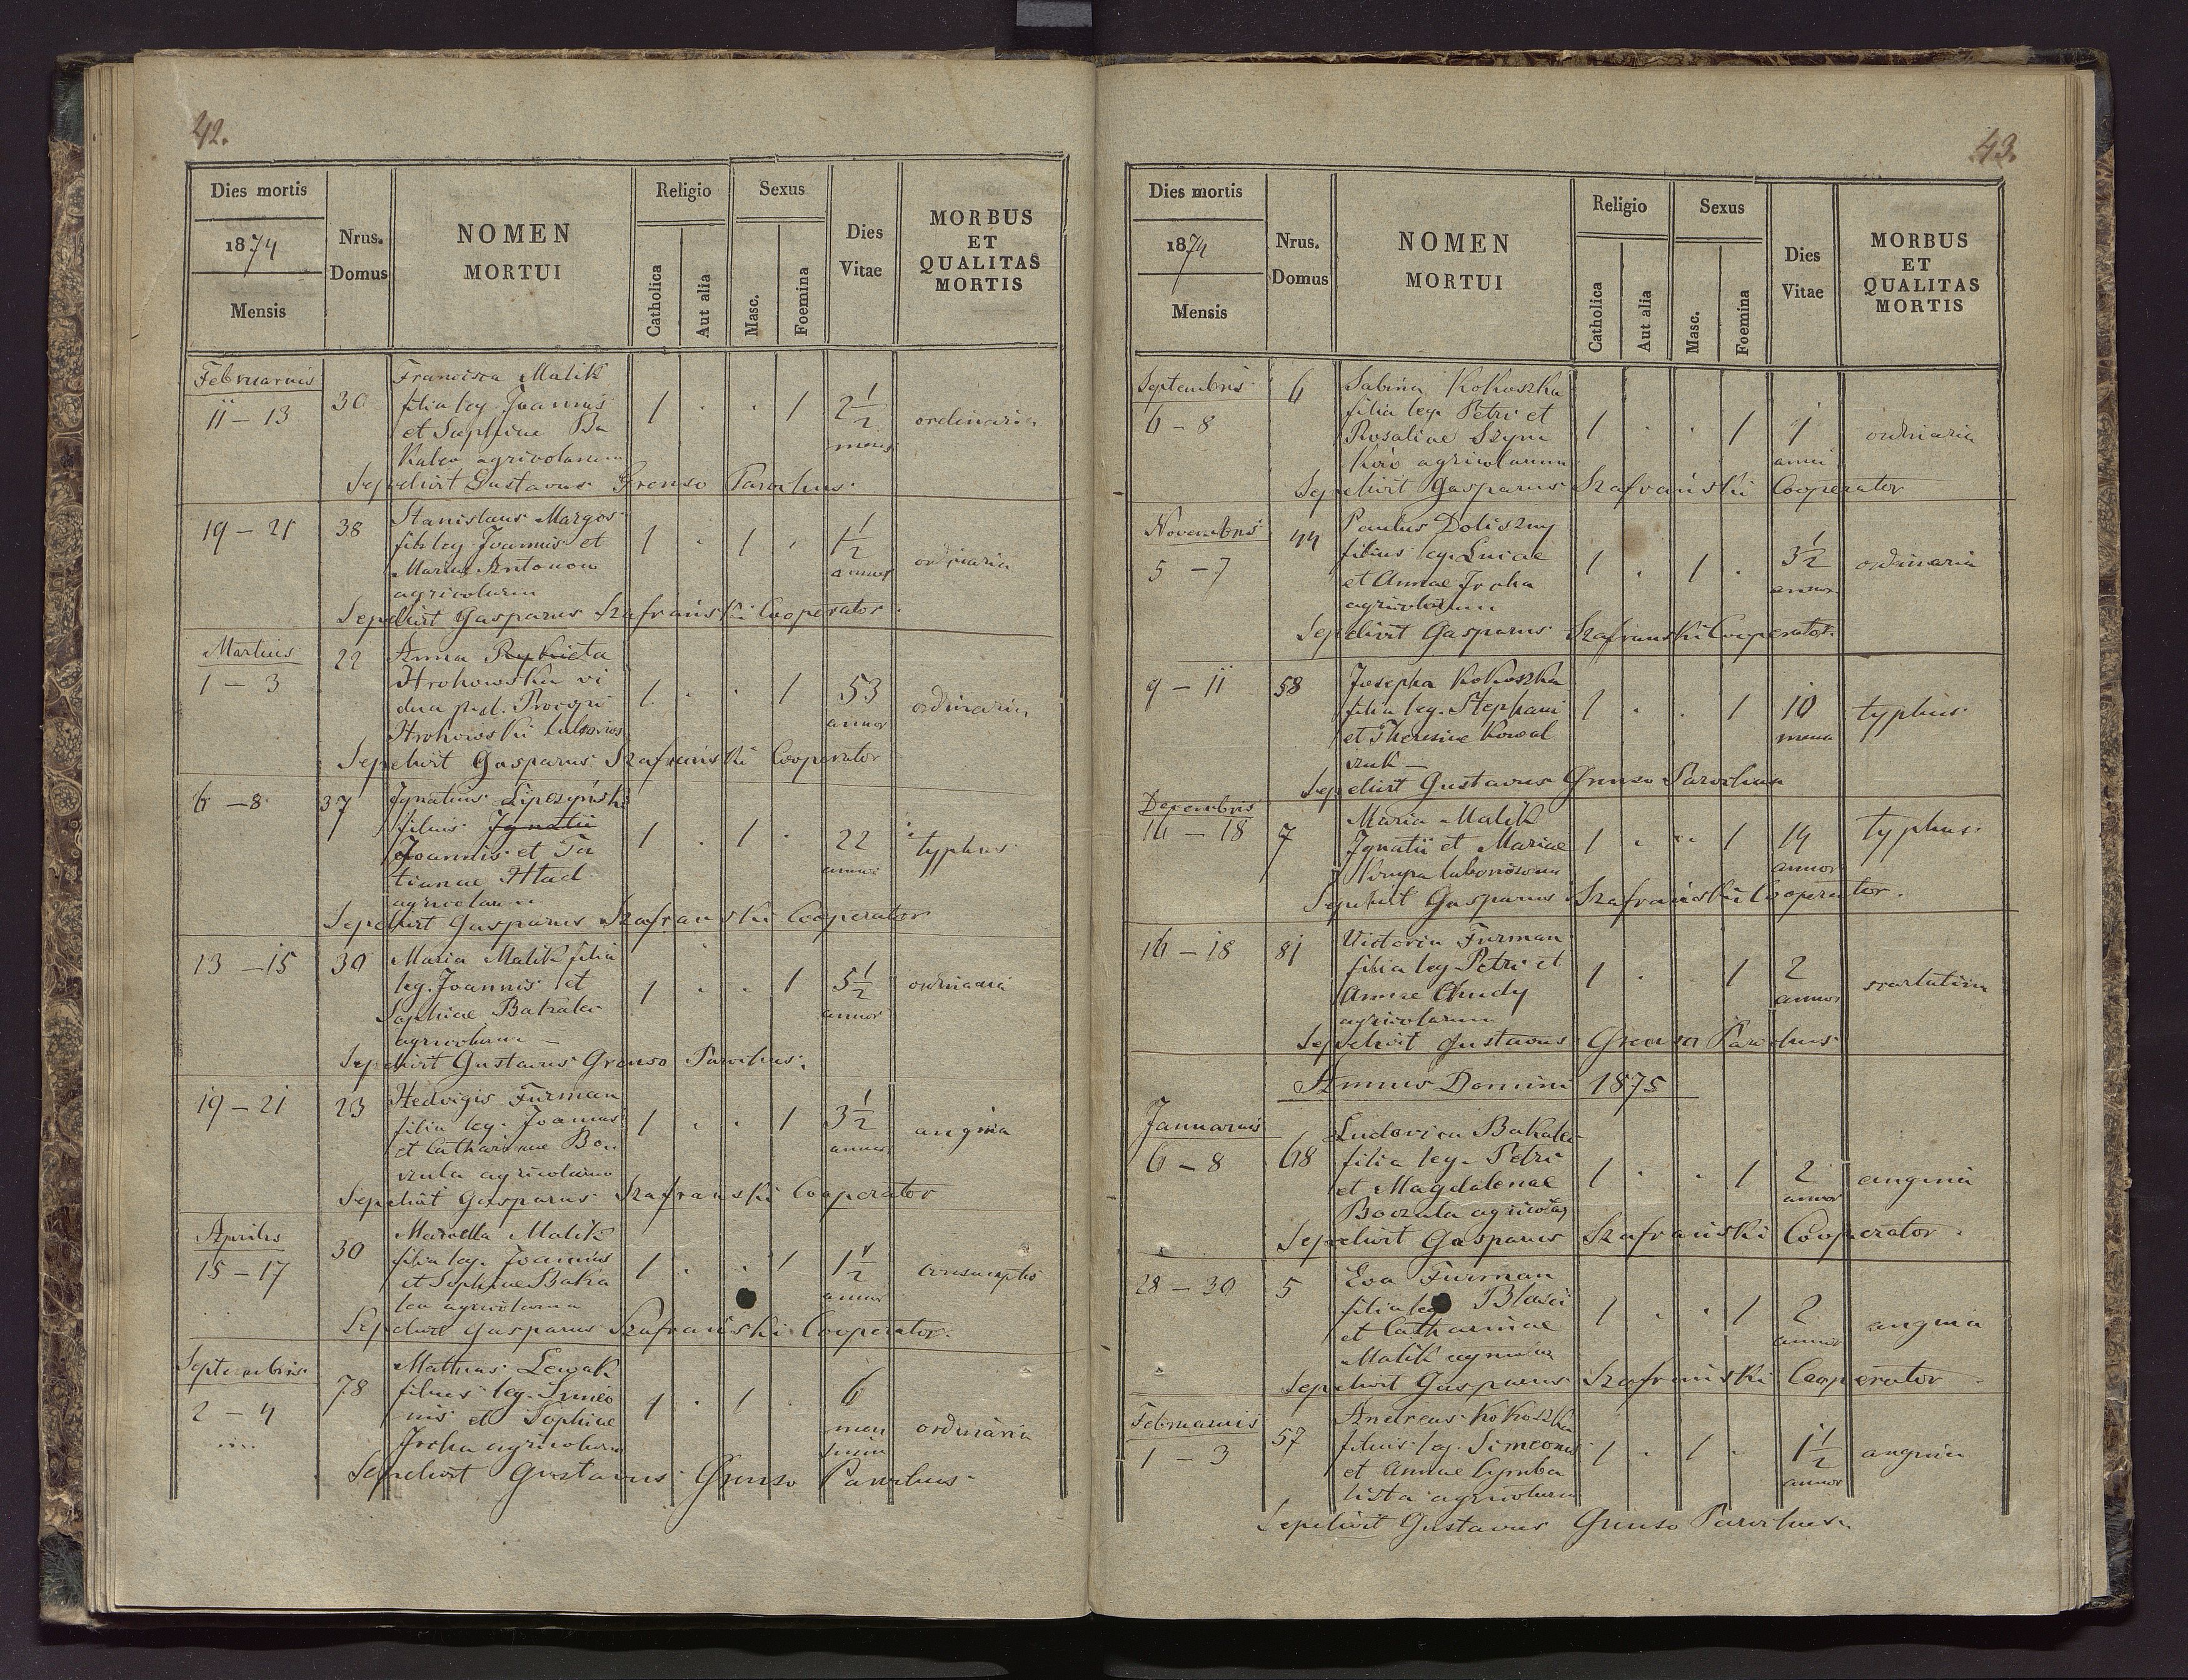 42.
Dies mortis
1874
Mensis
Nrus. Domus
NOMEN
MORTUI
Religio
Catholica
Aut alia
Sexus
Masc.
Foemina
Dies
Vitae
MORBUS
ET
QUALITAS
MORTIS
Februarius
11 – 13
30
Francisca Malik
filia leg. Joannis
et Sophiae Ba
kalea agricolarum
1 . . 1
2 1/2
mens
ordinaria
Sepelivit Gustavus Grenso Parochus
19 – 21
38
Stanislaus Margos
fils leg. Joannis et
Mariae Antonow
agricolarum
1 . 1 .
1 1/2
annor
ordinaria
Sepelivit Gasparus Szafrański Cooperator
Martius
1 – 3
22
Anna
Hrohowska vi
dua p.d. Procopi
Hrohowski
1 . . 1
53
annor
ordinaria
Sepelivit Gasparus Szafrański Cooperator
6 – 8
37
Ignatius Lipczyński
filius Ignatii
Joannis et Ta
tianae Hlad
agricolarum
1 . 1 .
22
typhus
Sepelivit Gasparus Szafrański Cooperator
13 – 15
30
Maria Malik filia
leg. Joannis et
Sophiae Bakalea
agricolarum
1 . . 1
5 1/2
annor
ordinaria
Sepelivit Gustavus Grenso Parochus
19 – 21
23
Hedvigis Furman
filia leg. Joannis
et Catharinae Bou
czula agricolarum
1 . . 1
3 1/2
annor
angina
Sepelivit Gasparus Szafrański Cooperator
Aprilis
15 – 17
30
Marcella Malik
filia leg. Joannis
et Sophiae Baka
lea agricolarum
1 . . 1
1 1/2
annor
Sepelivit Gasparus Szafrański Cooperator
Septembris
2 – 4
78
Mathias Lewak
filius leg. Simeo
nis et Sophiae
Jrcha agricolarum
1 . 1 .
6
men
sium
ordinaria
Sepelivit Gustavus Grenso Parochus
43.
Dies mortis
1874
Mensis
Nrus. Domus
NOMEN
MORTUI
Religio
Catholica
Aut alia
Sexus
Masc.
Foemina
Dies
Vitae
MORBUS
ET
QUALITAS
MORTIS
Septembris
6 – 8
6
Sabina Kokoszka
filia leg. Petri et
Rosaliae Szym
ków agricolarum
1 . . 1
1
anni
ordinaria
Sepelivit Gasparus Szafrański Cooperator
Novembris
5 – 7
44
Paulus Doliszny
filius leg. Lucae
et Annae Jrcha
agricolarum
1 . 1 .
3 1/2
annor
ordinaria
Sepelivit Gasparus Szafrański Cooperator
9 – 11
58
Josepha Kokoszka
filia leg. Stephani
et Theresiae Kowal
czuk
1 . . 1
10
mens
typhus
Sepelivit Gustavus Grenso Parochus
Decembris
16 – 18
7
Maria Malik
Ignatii et Mariae
1 . . 1
14
annor
typhus
Sepelivit Gasparus Szafrański Cooperator.
16 – 18
81
Victoria Furman
filia leg. Petri et
Annae Chudy
agricolarum
1 . . 1
2
annor
scarlatina
Sepelivit Gustavus Grenso Parochus
Annus Domini 1875
Januarius
6 – 8
68
Ludovica Bakalea
filia leg. Petri
et Magdalenae
Boczula agricolar
1 . . 1
2
annor
angina
Sepelivit Gasparus Szafrański Cooperator
28 – 30
5
Eva Furman
filia leg Blasii
et Catharinae
Malik
1 . . 1
2
annor
angina
Sepelivit Gasparus Szafrański Cooperator
Februarius
1 – 3
57
Andreas Kokoszka
filius leg. Simeonis
et Annae Cymba
lista agricolarum
1 . 1 .
1 1/2
annor
angina
Sepelivit Gustavus Grenso Parochus